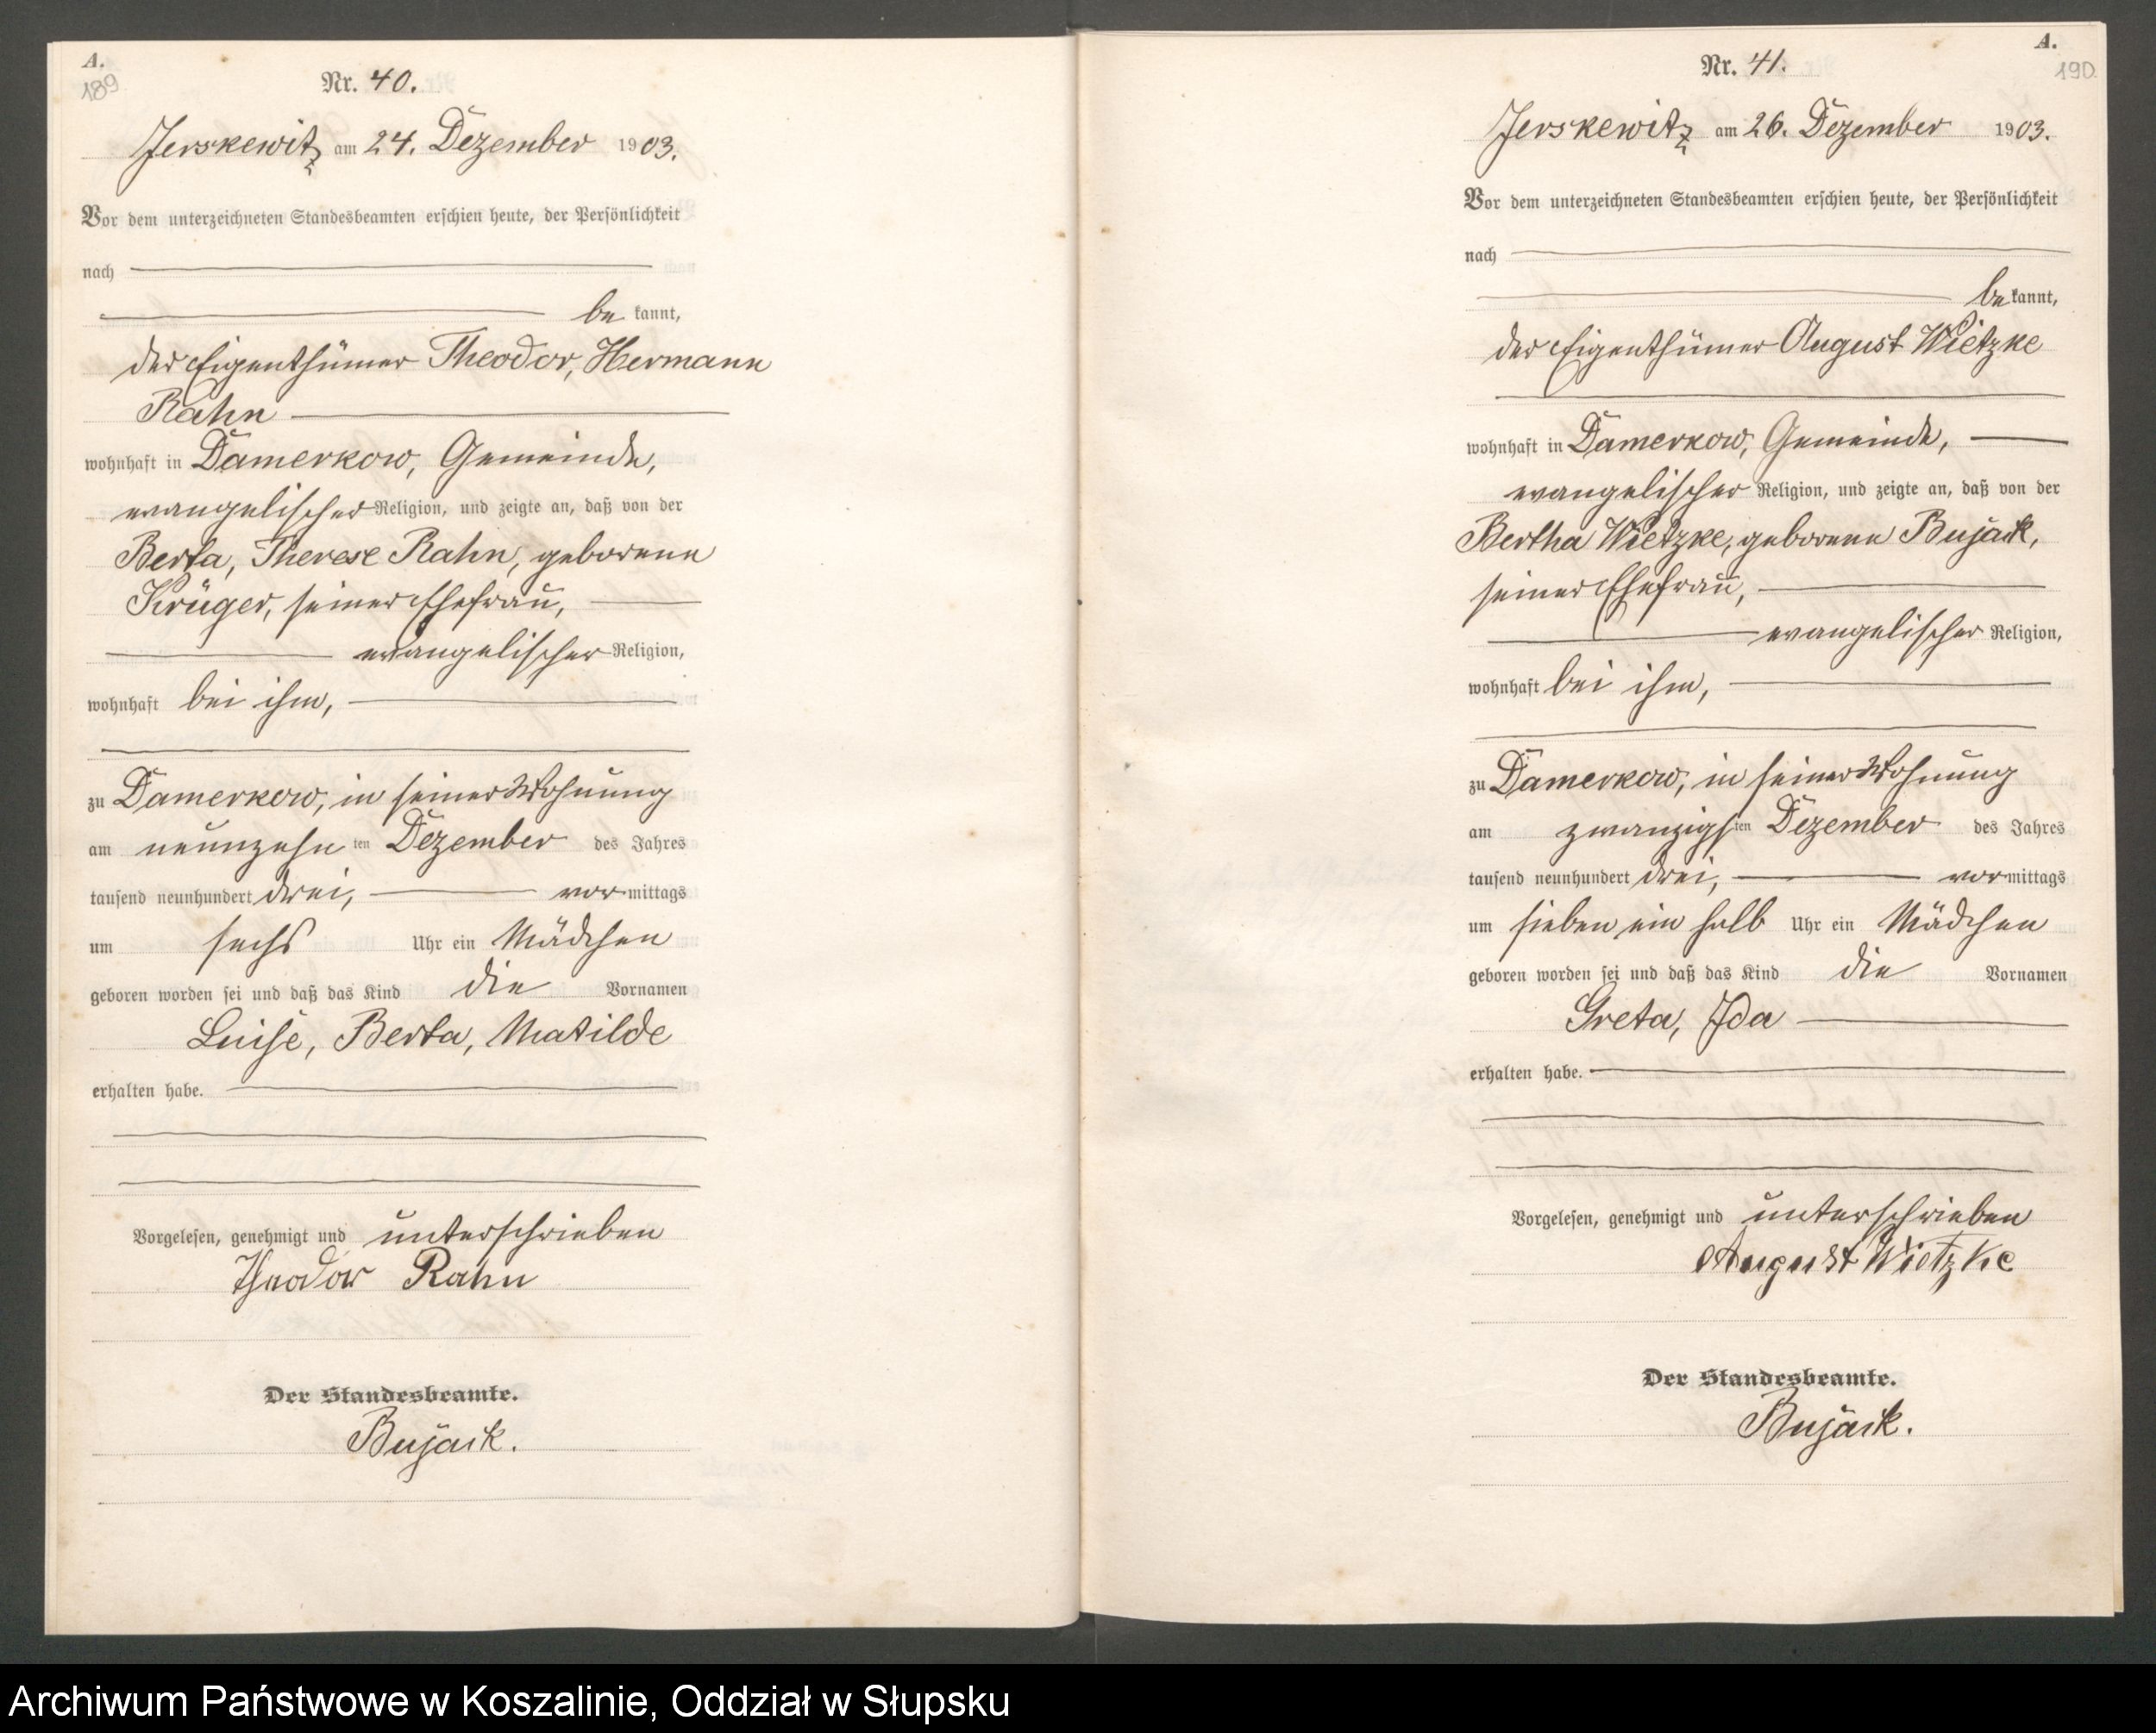 A.
189
Nr. 40.
Jerskewitz am 24. Dezember 1903.
Vor dem unterzeichneten Standesbeamten erschien heute, der Persönlichkeit
nach
be kannt,
der Eigenthümer Theodor, Hermann
Rahn
wohnhaft in Damerkow, Gemeinde,
evangelischer Religion, und zeigte an, daß von der
Berta, Therese Rahn, geborene
Krüger, seiner Ehefrau,
evangelischer Religion,
wohnhaft bei ihm,
zu Damerkow, in seiner Wohnung
am neunzehn ten Dezember des Jahres
tausend neunhundert drei, vor mittags
um sechs Uhr ein Mädchen
geboren worden sei und daß das Kind die Vornamen
Luise, Berta, Matilde
erhalten habe.
Vorgelesen, genehmigt und unterschrieben
Theodor Rahn
Der Standesbeamte.
Bujack.
A.
190
Nr. 41.
Jerskewitz am 26. Dezember 1903.
Vor dem unterzeichneten Standesbeamten erschien heute, der Persönlichkeit
nach
be kannt,
der Eigenthümer August Wietzke
wohnhaft in Damerkow, Gemeinde,
evangelischer Religion, und zeigte an, daß von der
Bertha Wietzke, geborene Bujack,
seiner Ehefrau,
evangelischer Religion,
wohnhaft bei ihm,
zu Damerkow, in seiner Wohnung
am zwanzigsten Dezember des Jahres
tausend neunhundert drei, vormittags
um sieben ein halb Uhr ein Mädchen
geboren worden sei und daß das Kind die Vornamen
Greta, Ida
erhalten habe.
Vorgelesen, genehmigt und unterschrieben
August Wietzke
Der Standesbeamte.
Bujack.
Archiwum Państwowe w Koszalinie, Oddział w Słupsku